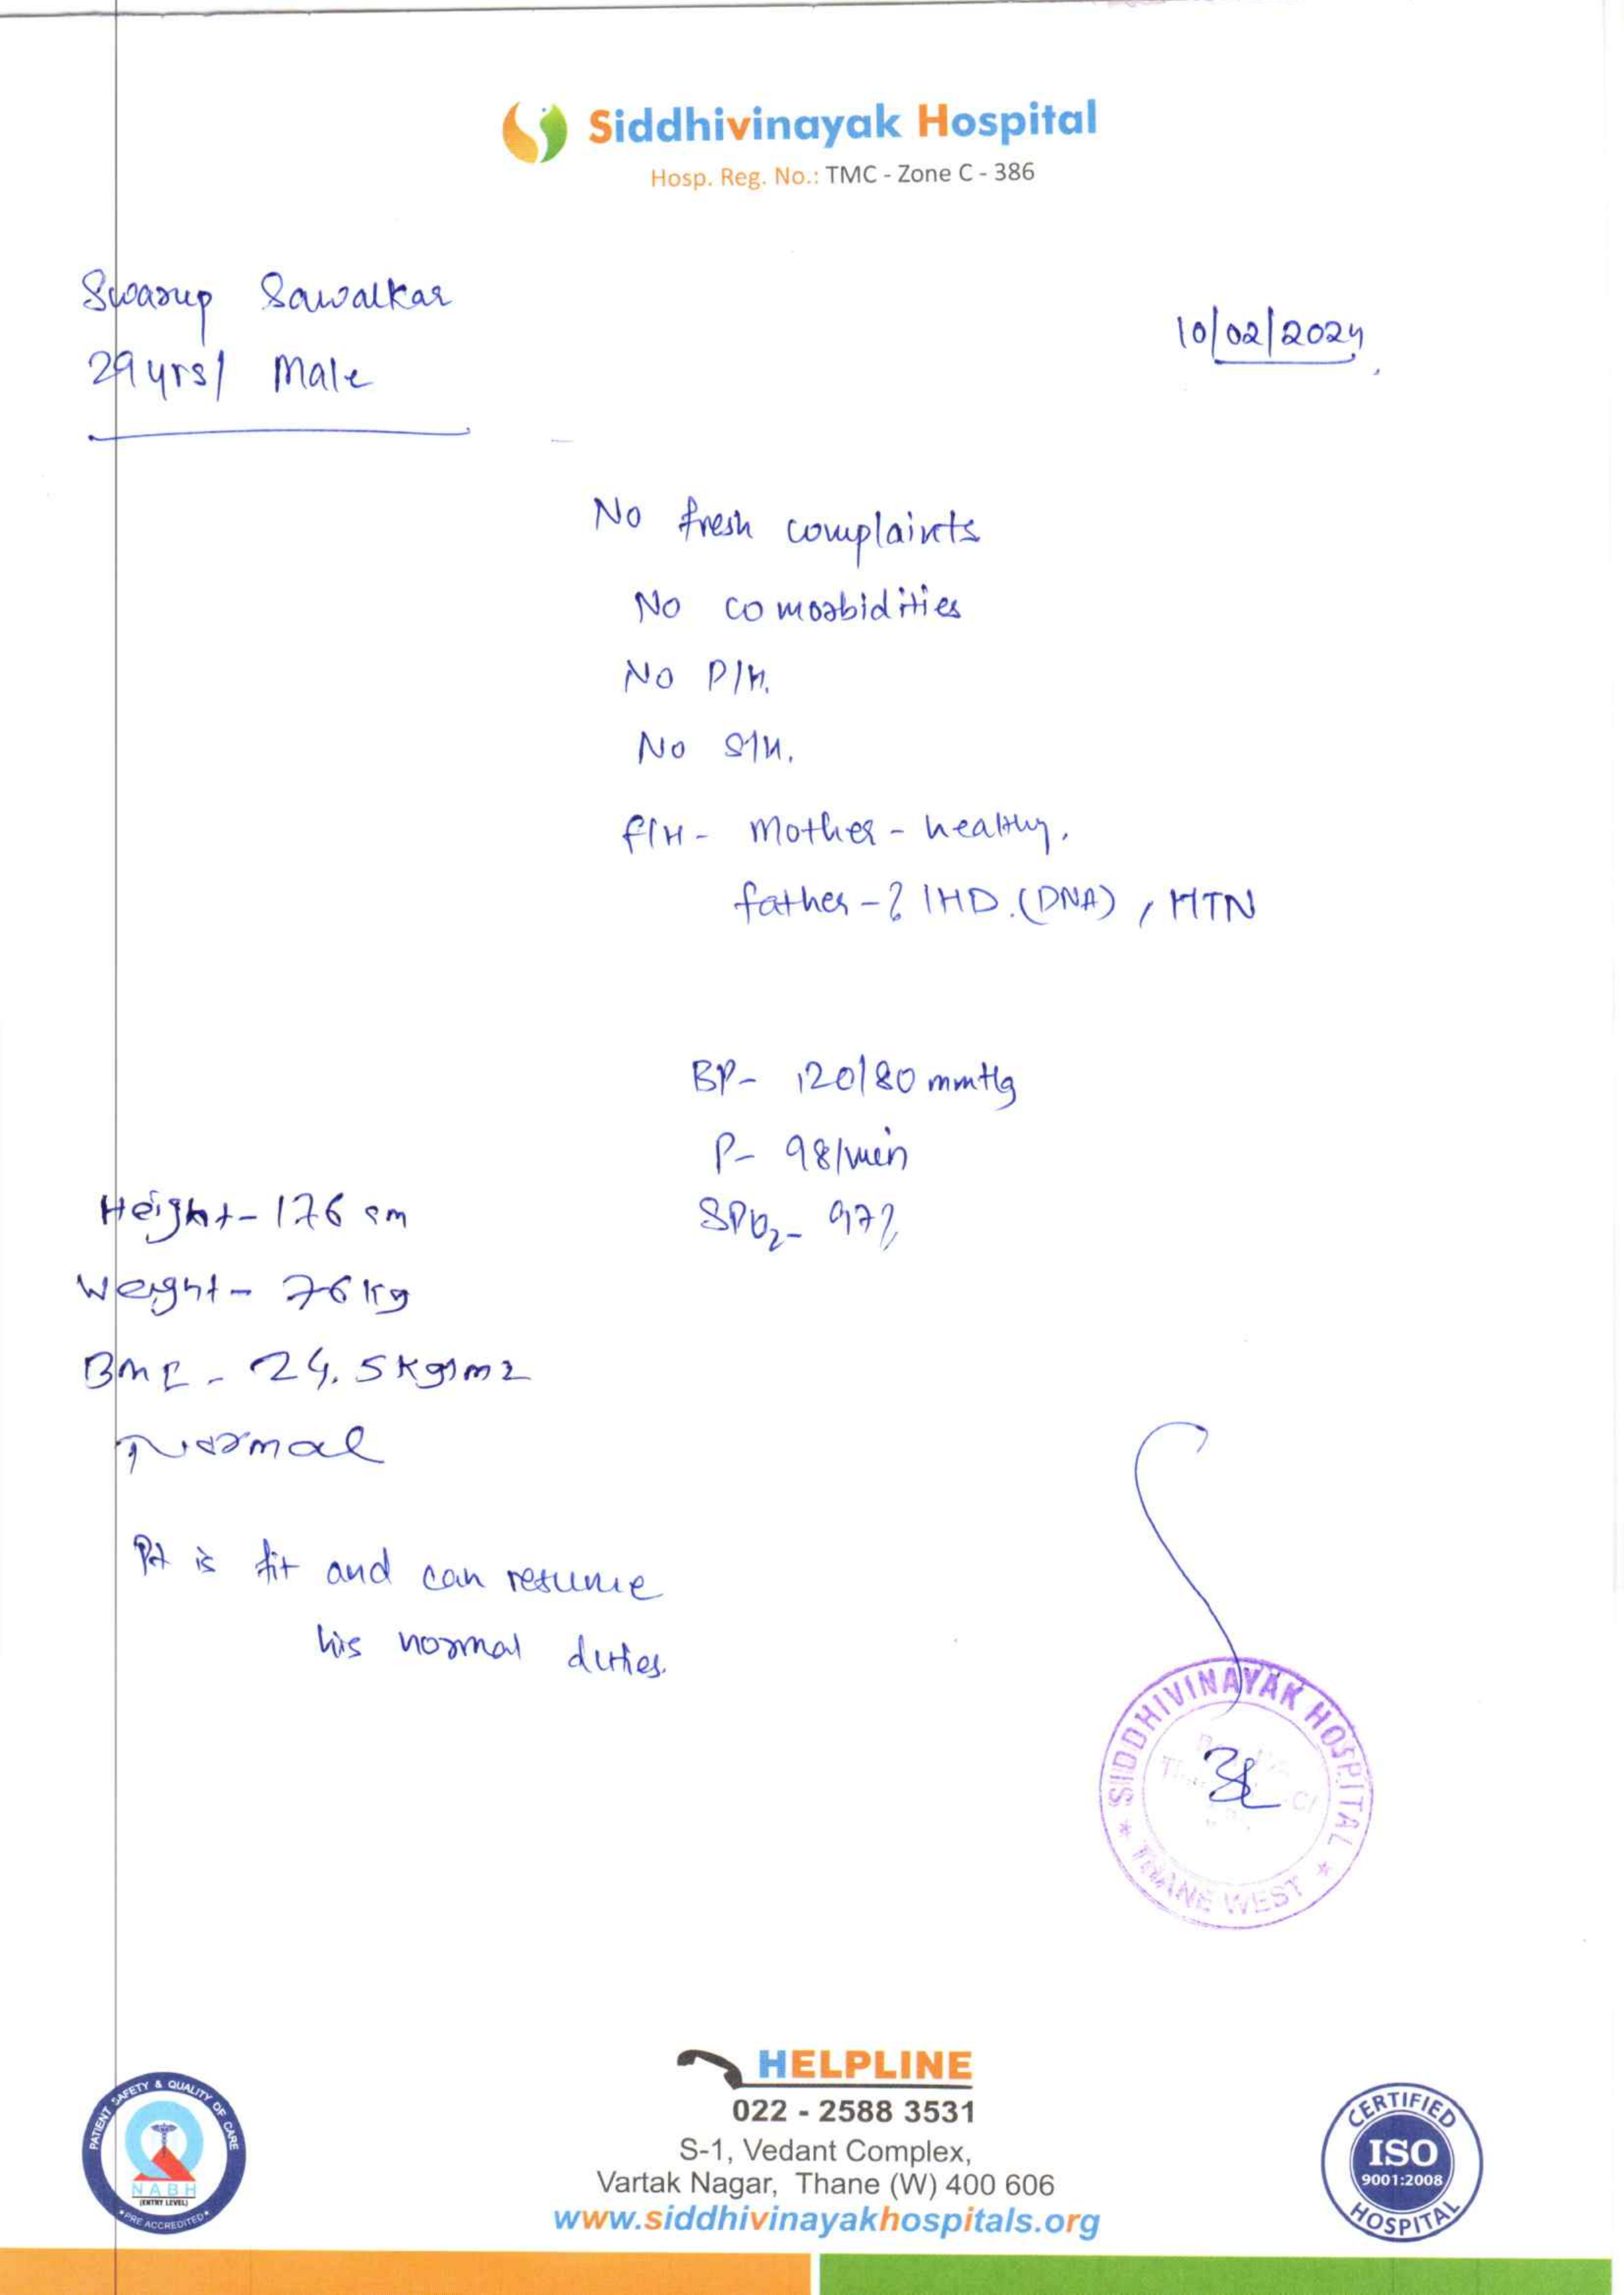 Siddhivinayak Hospital
Hosp. Reg. No.: TMC - Zone C - 386
Swarup Sawalkar
29 yrs/ Male
10/02/2024
No fresh complaints
No comorbidities
No P/H.
No S/H.
F/H - Mother - healthy,
father - ? IHD. (DNA), HTN
BP- 120/80 mmHg
P- 98/min
SPO2- 97%
Height- 176 cm
Weight- 76 kg
BMI - 24.5 kg/m2
Normal
Pt is fit and can resume
his normal duties.
SIDDHIVINAYAK HOSPITAL
* THANE WEST *
HELPLINE
022 - 2588 3531
S-1, Vedant Complex,
Vartak Nagar, Thane (W) 400 606
www.siddhivinayakhospitals.org
PATIENT SAFETY & QUALITY OF CARE
NABH
(ENTRY LEVEL)
* PRE ACCREDITED *
CERTIFIED
ISO
9001:2008
HOSPITAL